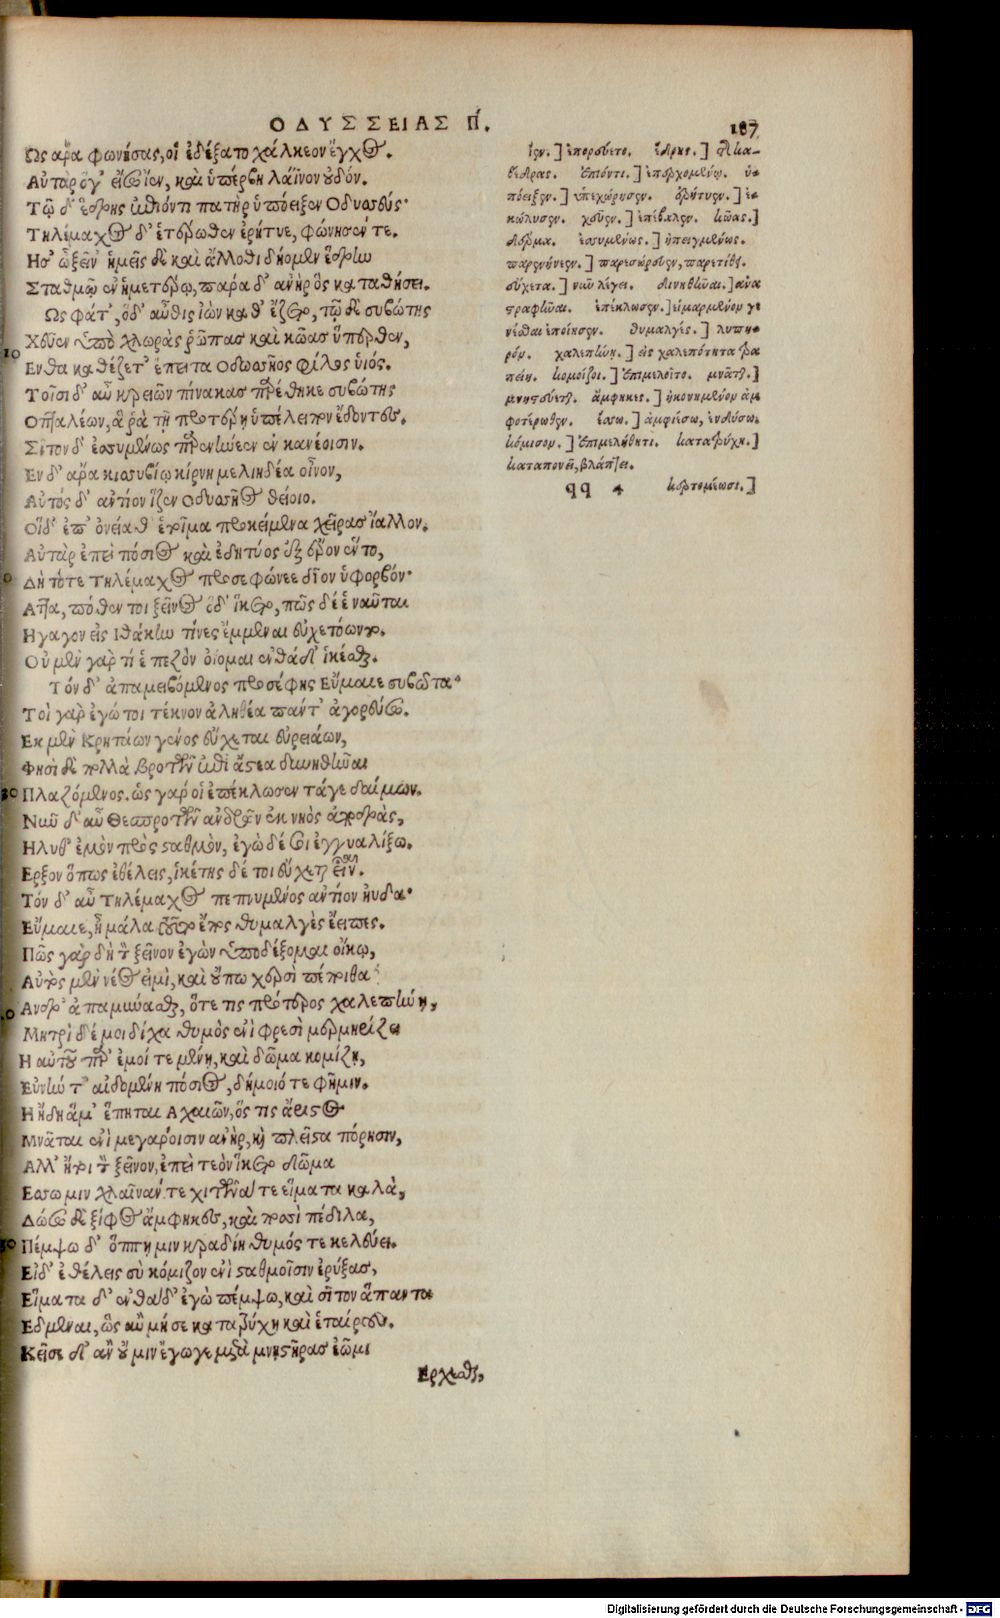 ΟΔΥΣΣΕΙΑΣ Π.
187
Ως ἄρα φωνήσας, οἱ ἐδέξατο χάλκεον ἔγχος.
Αὐτὰρ ὅγ' εἴσω ἴεν, καὶ ὑπέρβη λάϊνον οὐδόν.
Τῷ δ' ἕδρης ἐπιόντι πατὴρ ὑπόειξεν Οδυσσεύς·
Τηλέμαχος δ' ἑτέρωθεν ἐρήτυε, φώνησέν τε.
Ησ' ὦ ξεῖν' ἡμεῖς δὲ καὶ ἄλλοθι δήομεν ἕδρην
Σταθμῷ ἐν ἡμετέρῳ, πάρα δ' ἀνὴρ ὃς καταθήσει.
Ως φάτ', ὁ δ' αὖθις ἰὼν κατ' ἄρ' ἕζετο, τῷ δὲ συβώτης
Χεῦεν ὕπο χλωρὰς ῥῶπας καὶ κῶας ὕπερθεν,
10
Ενθα καθέζετ' ἔπειτα Οδυσσῆος φίλος ὑιός.
Τοῖσι δ' αὖ κρειῶν πίνακας παρέθηκε συβώτης
Οπταλέων, ἅ ῥα τῇ προτέρῃ ὑπέλειπον ἔδοντες.
Σῖτον δ' ἐσσυμένως παρενήνεεν ἐν κανέοισιν.
Εν δ' ἄρα κισσυβίῳ κίρνη μελιηδέα οἶνον,
Αὐτὸς δ' ἀντίον ἷζεν Οδυσσῆος θείοιο.
Οἵδ' ἐπ' ὀνείαθ' ἑτοῖμα προκείμενα χεῖρας ἴαλλον.
Αὐτὰρ ἐπεὶ πόσιος καὶ ἐδητύος ἐξ ἔρον ἕντο,
0
Δὴ τότε Τηλέμαχος προσεφώνεε δῖον ὑφορβόν·
Αττα, πόθεν τοι ξεῖνος ὅδ' ἵκετο, πῶς δέ ἑ ναῦται
Ηγαγον εἰς Ιθάκην τίνες ἔμμεναι εὐχετόωντο.
Οὐ μὲν γάρ τί ἑ πεζὸν ὀΐομαι ἐνθάδ' ἱκέσθαι.
Τόν δ' ἀπαμειβόμενος προσέφης Εὔμαιε συβῶτα·
Τοὶ γὰρ ἐγώ τοι τέκνον ἀληθέα πάντ' ἀγορεύσω.
Εκ μὲν Κρητάων γένος εὔχεται εὐρειάων,
Φησὶ δὲ πολλὰ βροτῶν ἐπὶ ἄστεα δινηθῆναι
20
Πλαζόμενος. ὣς γάρ οἱ ἐπέκλωσεν τάγε δαίμων.
Νῦν δ' αὖ Θεσπρωτῶν ἀνδρῶν ἐκ νηὸς ἀποδρὰς,
Ηλυθ' ἐμὸν πρὸς σταθμὸν, ἐγὼ δέ σοι ἐγγυαλίξω.
Ερξον ὅπως ἐθέλεις, ἱκέτης δέ τοι εὔχεται εἶναι.
Τόν δ' αὖ Τηλέμαχος πεπνυμένος ἀντίον ηὔδα·
Εὔμαιε, ἦ μάλα τοῦτο ἔπος θυμαλγὲς ἔειπες.
Πῶς γὰρ δὴ τὸν ξεῖνον ἐγὼν ὑποδέξομαι οἴκῳ,
Αὐτὸς μὲν νέος εἰμὶ, καὶ οὔπω χερσὶ πέποιθα
Ανδρ' ἀπαμύνασθαι, ὅτε τις πρότερος χαλεπήνῃ,
Μητρὶ δέ μοι δίχα θυμὸς ἐνὶ φρεσὶ μερμηρίζει
Η αὐτοῦ παρ' ἐμοί τε μένῃ, καὶ δῶμα κομίζῃ,
Εὐνήν τ' αἰδομένη πόσιος, δήμοιό τε φῆμιν.
Η ἤδη ἅμ' ἕπηται Αχαιῶν, ὅς τις ἄριστος
Μνᾶται ἐνὶ μεγάροισιν ἀνὴρ, καὶ πλεῖστα πόρησιν,
Αλλ' ἤτοι τὸν ξεῖνον, ἐπεὶ τεὸν ἵκετο δῶμα
Εσσω μιν χλαῖνάν τε χιτῶνά τε εἵματα καλὰ,
Δώσω δὲ ξίφος ἄμφηκες, καὶ ποσὶ πέδιλα,
Πέμψω δ' ὅππη μιν κραδίη θυμός τε κελεύει.
Εἰ δ' ἐθέλεις σὺ κόμισον ἐνὶ σταθμοῖσιν ἐρύξας,
Εἵματα δ' ἐνθάδ' ἐγὼ πέμψω, καὶ σῖτον ἅπαντα
Εδμεναι, ὡς ἂν μή σε κατατρύχῃ καὶ ἑταίρους.
Κεῖσε δ' ἂν οὔ μιν ἔγωγε μετὰ μνηστῆρας ἐῷμι
Ερχεσθαι,
ἴεν.] ἐπορεύετο. ἕδρης.] τῆς κα-
θέδρας. ἐπιόντι.] ἐπερχομένῳ. ὑ-
πόειξεν.] ὑπεχώρησεν. ἐρήτυεν.] ἐ-
κώλυσεν. χεῦεν.] ἐπέβαλεν. κῶας.]
δέρμα. ἐσσυμένως.] ἠπειγμένως.
παρενήνεεν.] παρεσώρευεν, παρετίθει.
εὔχεται.] νῦν λέγει. δινηθῆναι.] ἀνα
στραφῆναι. ἐπέκλωσεν.] εἱμαρμένον γε
νέσθαι ἐποίησεν. θυμαλγές.] λυπη-
ρόν. χαλεπήνῃ.] εἰς χαλεπότητα τρα
πείη. κομίζοι.] ἐπιμελοῖτο. μνᾶται.]
μνηστεύεται. ἄμφηκες.] ἠκονημένον ἀμ
φοτέρωθεν. ἕσσω.] ἀμφιέσω, ἐνδύσω.
κόμισον.] ἐπιμελήθητι. κατατρύχῃ.]
καταπονεῖ, βλάπτει.
qq 4 κερτομέωσι.]
Digitalisierung gefördert durch die Deutsche Forschungsgemeinschaft - DFG